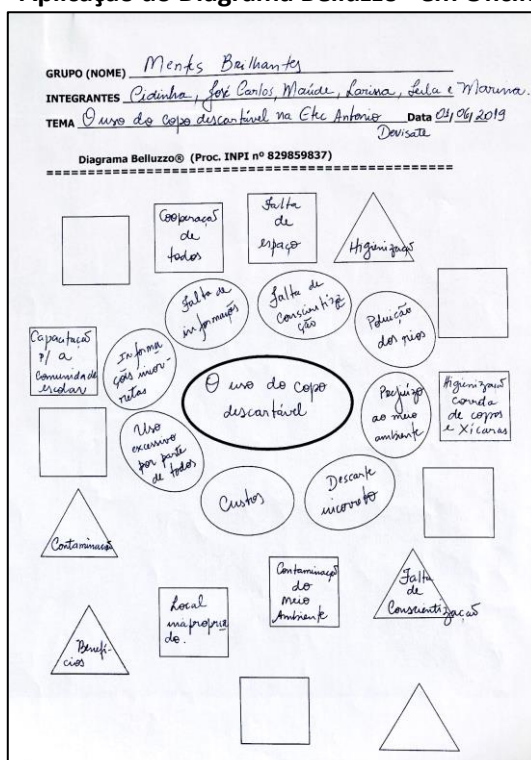 Aplicação do Diagrama Belluzzo® em Oficin
GRUPO (NOME) Mentes Brilhantes
INTEGRANTES Cidinha, José Carlos, Maúde, Larissa, Leila e Marina.
TEMA O uso do copo descartável na Etec Antonio Devisate Data 01/06/2019
Diagrama Belluzzo® (Proc. INPI nº 829859837)
Cooperação
de
todos
Falta
de
espaço
Higienização
Falta de
informações
Falta de
conscientiza
ção
Poluição
dos rios
Capacitação
p/ a
comunidade
escolar
Informa
ções incor-
retas
O uso do copo
descartável
Prejuízo
ao meio
ambiente
Higienização
correta
de copos
e Xícaras
Uso
excessivo
por parte
de todos
Custos
Descarte
incorreto
Contaminação
Contaminação
do
Meio
Ambiente
Falta
de
Conscientização
Local
inapropria
do.
Benefí-
cios